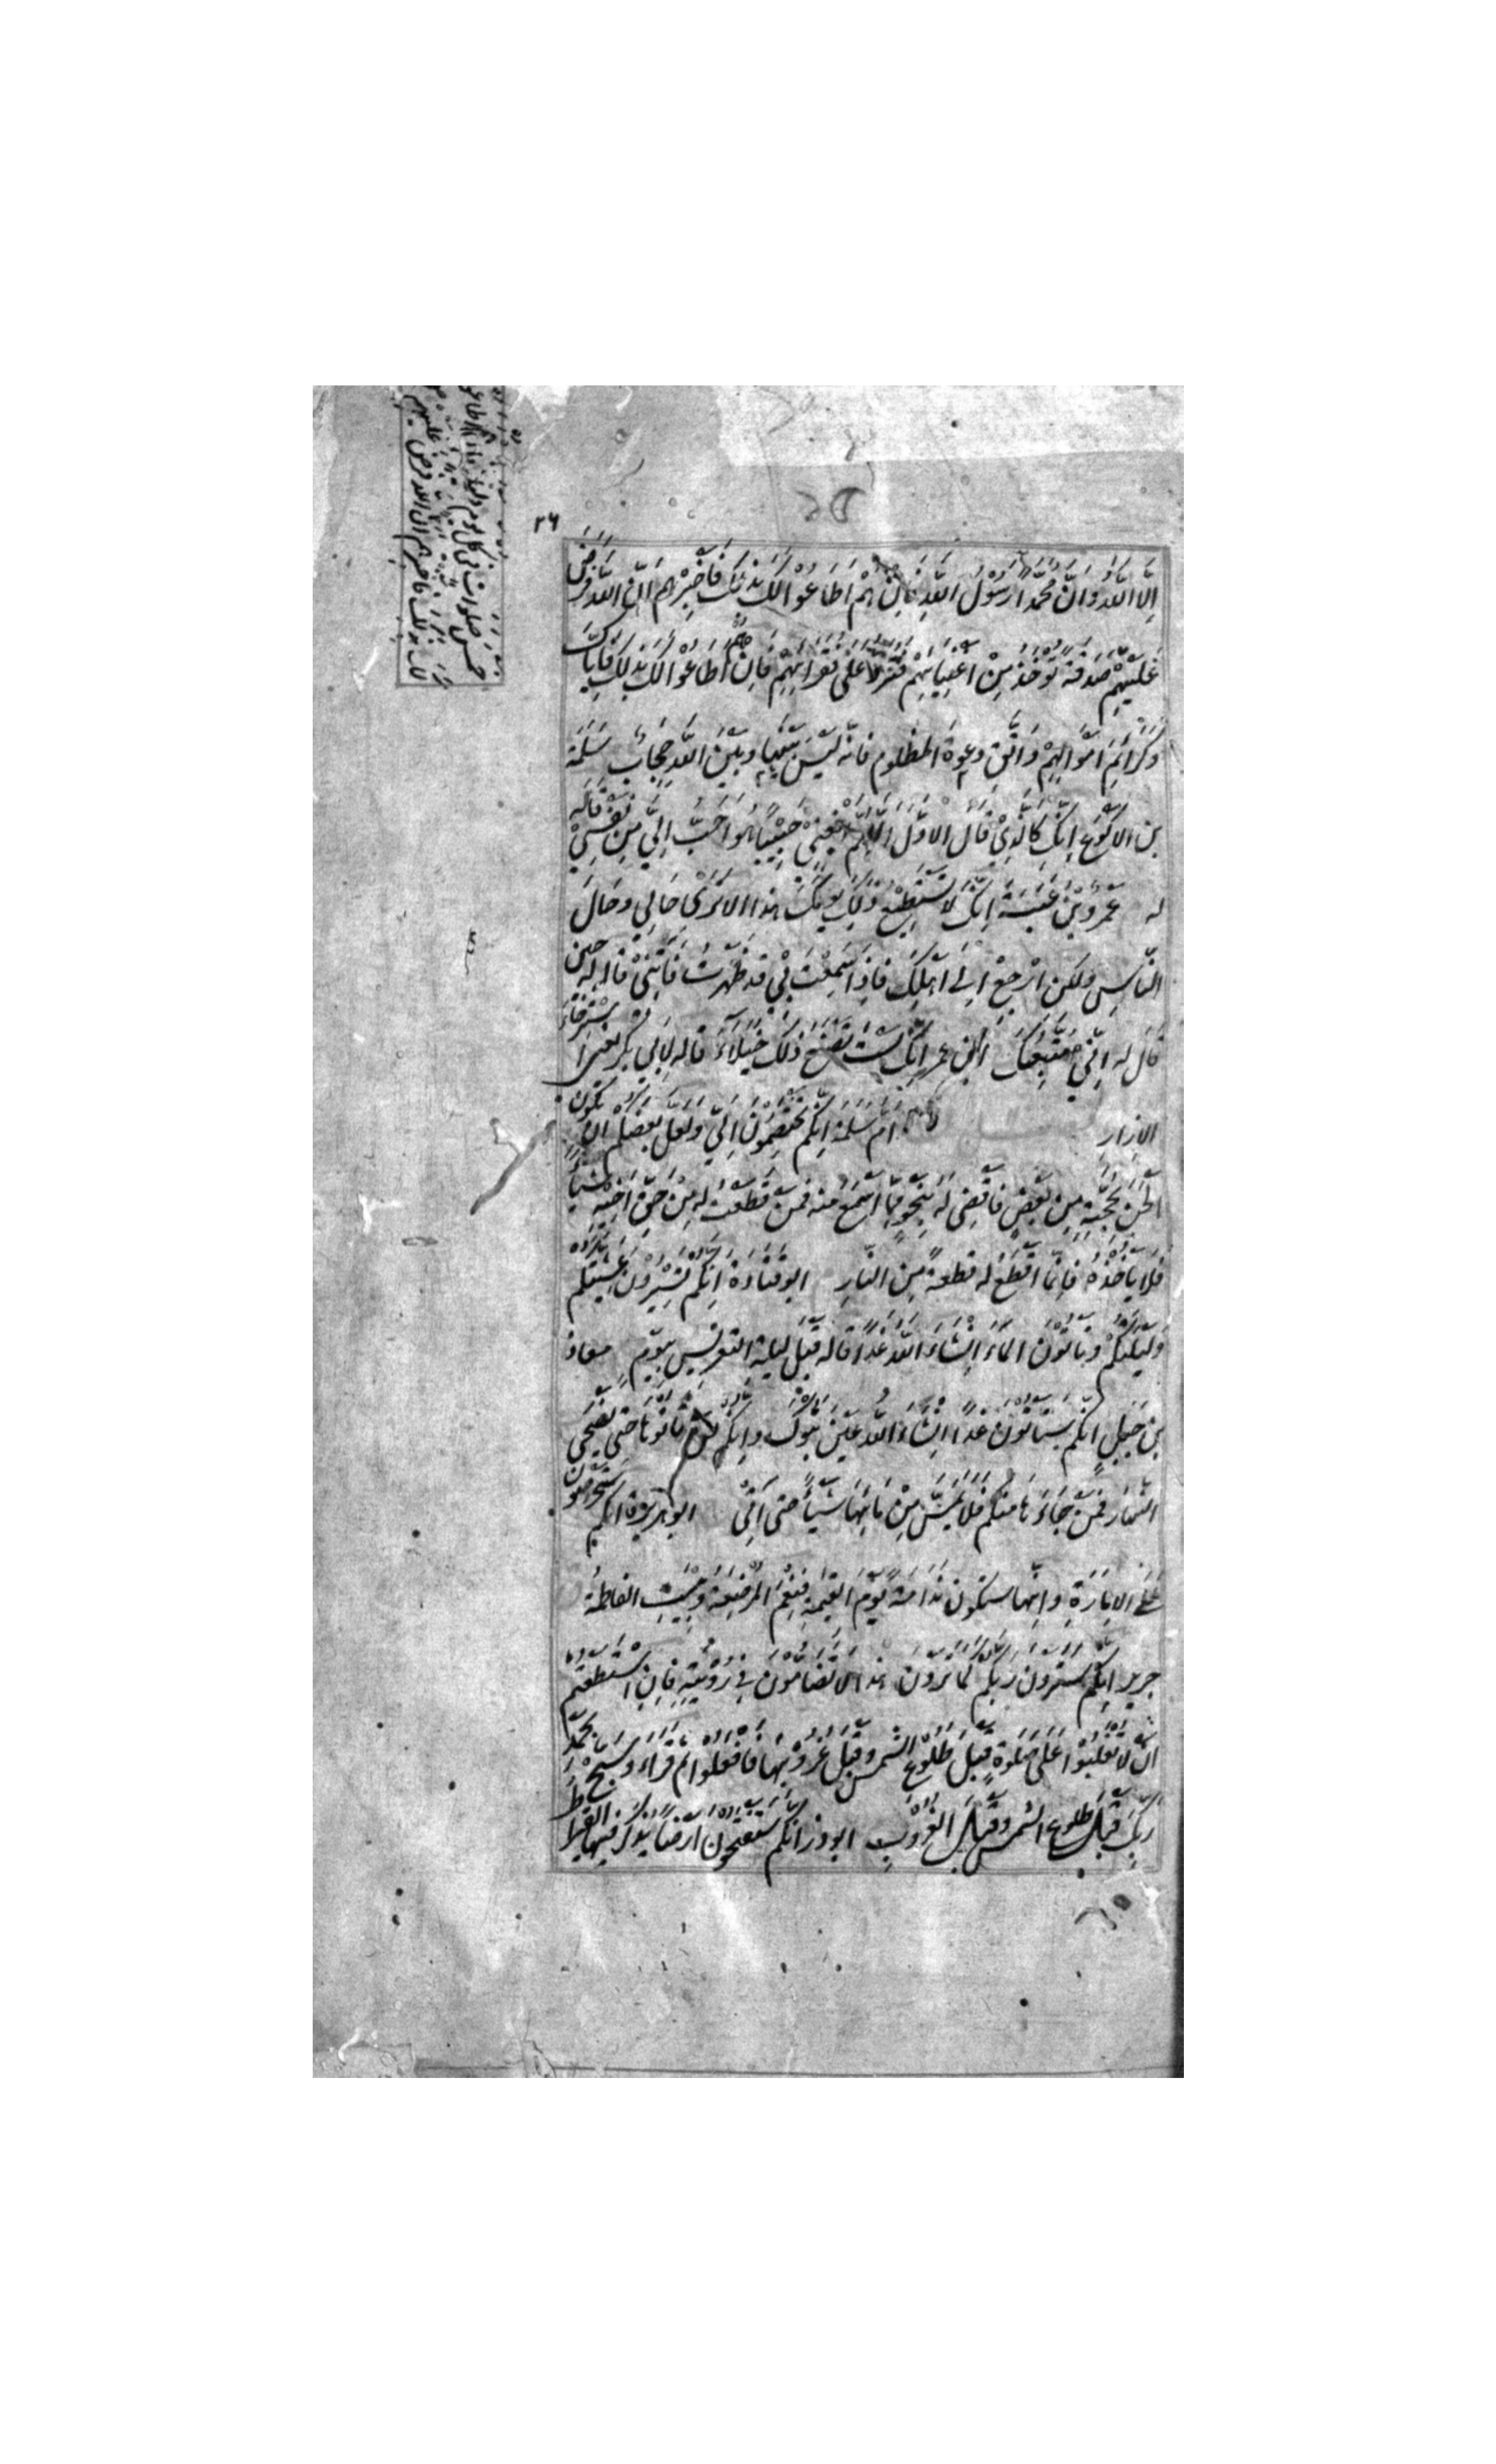 ٢٦
اِلَّا اللّٰهُ وَاَنَّ مُحَمَّدًا رَسُوْلُ اللّٰهِ فَاِنْ هُمْ اَطَاعُوْا لَكَ بِذٰلِكَ فَاَخْبِرْهُمْ اَنَّ اللّٰهَ فَرَضَ
عَلَيْهِمْ صَدَقَةً تُؤْخَذُ مِنْ اَغْنِيَائِهِمْ فَتُرَدُّ عَلٰى فُقَرَائِهِمْ فَاِنْ هُمْ اَطَاعُوْا لَكَ بِذٰلِكَ فَاِيَّاكَ
وَكَرَائِمَ اَمْوَالِهِمْ وَاتَّقِ دعوة المظلوم فانه لَيْسَ بَيْنَهَا وبَيْنَ اللّٰهِ حِجَابٌ سَلَمَة
بن الاكْوَعِ اِنَّكَ كَالَّذِيْ قَالَ الاَوَّلُ اَللّٰهُمَّ ابْغِنِيْ حَبِيْبًا هُوَ اَحَبُّ اِلَيَّ مِنْ نَفْسِيْ قاله
له عَمْرو بْن عَبَسَةَ اِنَّكَ لَا تَسْتَطِيْعُ ذٰلِكَ يَوْمَكَ هذا الا تَرٰى حَالِيْ وحَالَ
النَّاسِ ولكن ارْجِعْ اِلٰى اَهْلِكَ فَاِذَا سَمِعْتَ بِيْ قد ظَهَرْتُ فَأْتِنِيْ قاله حين
قَالَ له اِنِّيْ مُتَّبِعُكَ ابن عمر اِنَّكَ لَسْتَ تَصْنَعُ ذٰلِكَ خُيَلَاءَ قاله لِاَبِيْ بكر يعني اسْتِرْخَاءَ
الازار ام سَلَمَة اِنَّكُمْ تَخْتَصِمُوْنَ اِلَيَّ وَلَعَلَّ بَعْضَكُمْ اَنْ يَكُوْنَ
اَلْحَنَ بِحُجَّتِهٖ مِنْ بَعْضٍ فَاَقْضِيْ لَهُ بِنَحْوٍ مِمَّا اَسْمَعُ منه فَمَنْ قَطَعْتُ لَهُ مِنْ حَقِّ اَخِيْهِ شَيْئًا
فَلَا يَأْخُذْهُ فَاِنَّمَا اَقْطَعُ لَهُ قِطْعَةً مِنَ النَّارِ ابو قَتَادَة اِنَّكُمْ تَسِيْرُوْنَ عَشِيَّتَكُمْ
وَلَيْلَتَكُمْ وَتَاْتُوْنَ الْمَاءَ اِنْ شَاءَ اللّٰهُ غَدًا قاله قَبْلَ ليلة التعريس بِيَوْمٍ معاذ
بن جَبَلٍ اِنَّكُمْ سَتَاْتُوْنَ غَدًا اِنْ شَاءَ اللّٰهُ عَيْنَ تَبُوْكَ وَاِنَّكُمْ لَنْ تَاْتُوْهَا حَتّٰى يُضْحِيَ
النَّهَارُ فَمَنْ جَاءَهَا مِنْكُمْ فَلَا يَمَسَّ مِنْ مَائِهَا شَيْئًا حَتّٰى اٰتِيَ ابو هريرة انكم سَتَحْرِصُوْنَ
عَلَى الْاِمَارَةِ وَاِنَّهَا سَتَكُوْنُ نَدَامَةً يَوْمَ الْقِيٰمَةِ فَنِعْمَ الْمُرْضِعَةُ وَبِئْسَتِ الفاطمة
جرير اِنَّكُمْ سَتَرَوْنَ رَبَّكُمْ كَمَا تَرَوْنَ هٰذَا لَا تُضَامُّوْنَ فِيْ رُؤْيَتِهٖ فَاِنِ اسْتَطَعْتُمْ
اَنْ لَا تُغْلَبُوْا عَلٰى صَلٰوةٍ قَبْلَ طُلُوْعِ الشَّمْسِ وَقَبْلَ غُرُوْبِهَا فَافْعَلُوْا ثُمَّ قَرَاَ وَسَبِّحْ بِحَمْدِ
رَبِّكَ قَبْلَ طُلُوعِ الشَّمْسِ وَقَبْلَ الغُرُوْبِ ابو ذر اِنَّكُمْ سَتَفْتَحُوْنَ اَرْضًا يُذْكَرُ فِيْهَا القِيْرَاطُ
خمس صلوات في كل يوم وليلة فان هم اطاعوا
لك بذلك فاخبرهم ان الله فرض عليهم